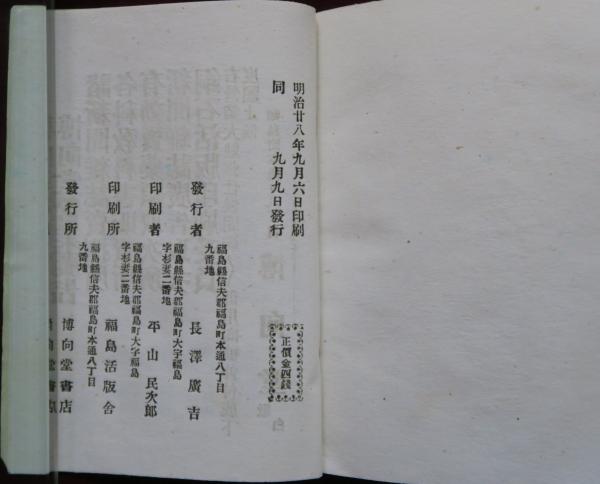 明治廿八年九月六日印刷
同 九月九日發行
正價金四錢
福島縣信夫郡福島町本通八丁目
九番地
發行者 長澤廣吉
福島縣信夫郡福島町大字福島
字杉妻二番地
印刷者 平山民次郎
福島縣信夫郡福島町大字福島
字杉妻二番地
印刷所 福島活版舎
福島縣信夫郡福島町本通八丁目
九番地
發行所 博向堂書店